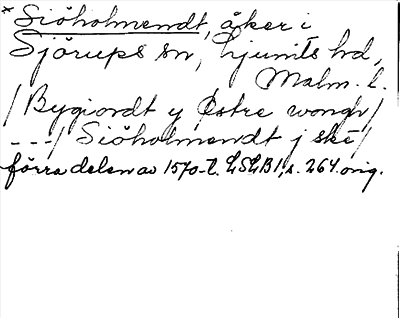 * Siöholmendt, åker i
Sjörups sn, Ljunits hd,
Malm. l.
/ Bygiordt y Østre wongh/
---/ Siöholmendt j ské/
förra delen av 1570-t. LSLB1, s. 264. orig.